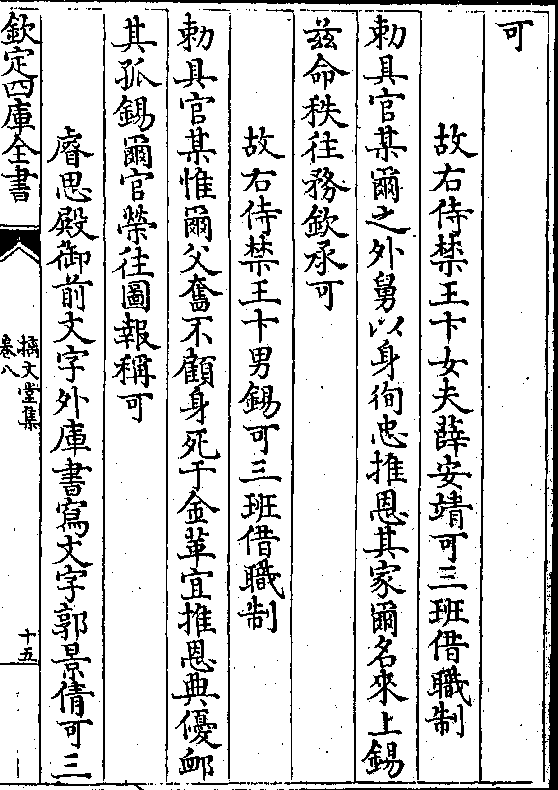 可
故右侍禁王卞女夫薛安靖可三班借職制
勅具官某爾之外舅以身徇忠推恩其家爾名來上錫
兹命秩往務欽承可
故右侍禁王卞男錫可三班借職制
勅具官某惟爾父奮不顧身死于金革宜推恩典優邮
其孤錫爾官榮往圖報稱可
睿思殿御前文字外庫書寫文字郭景倩可三
欽定四庫全書
摛文堂集
卷八
十五